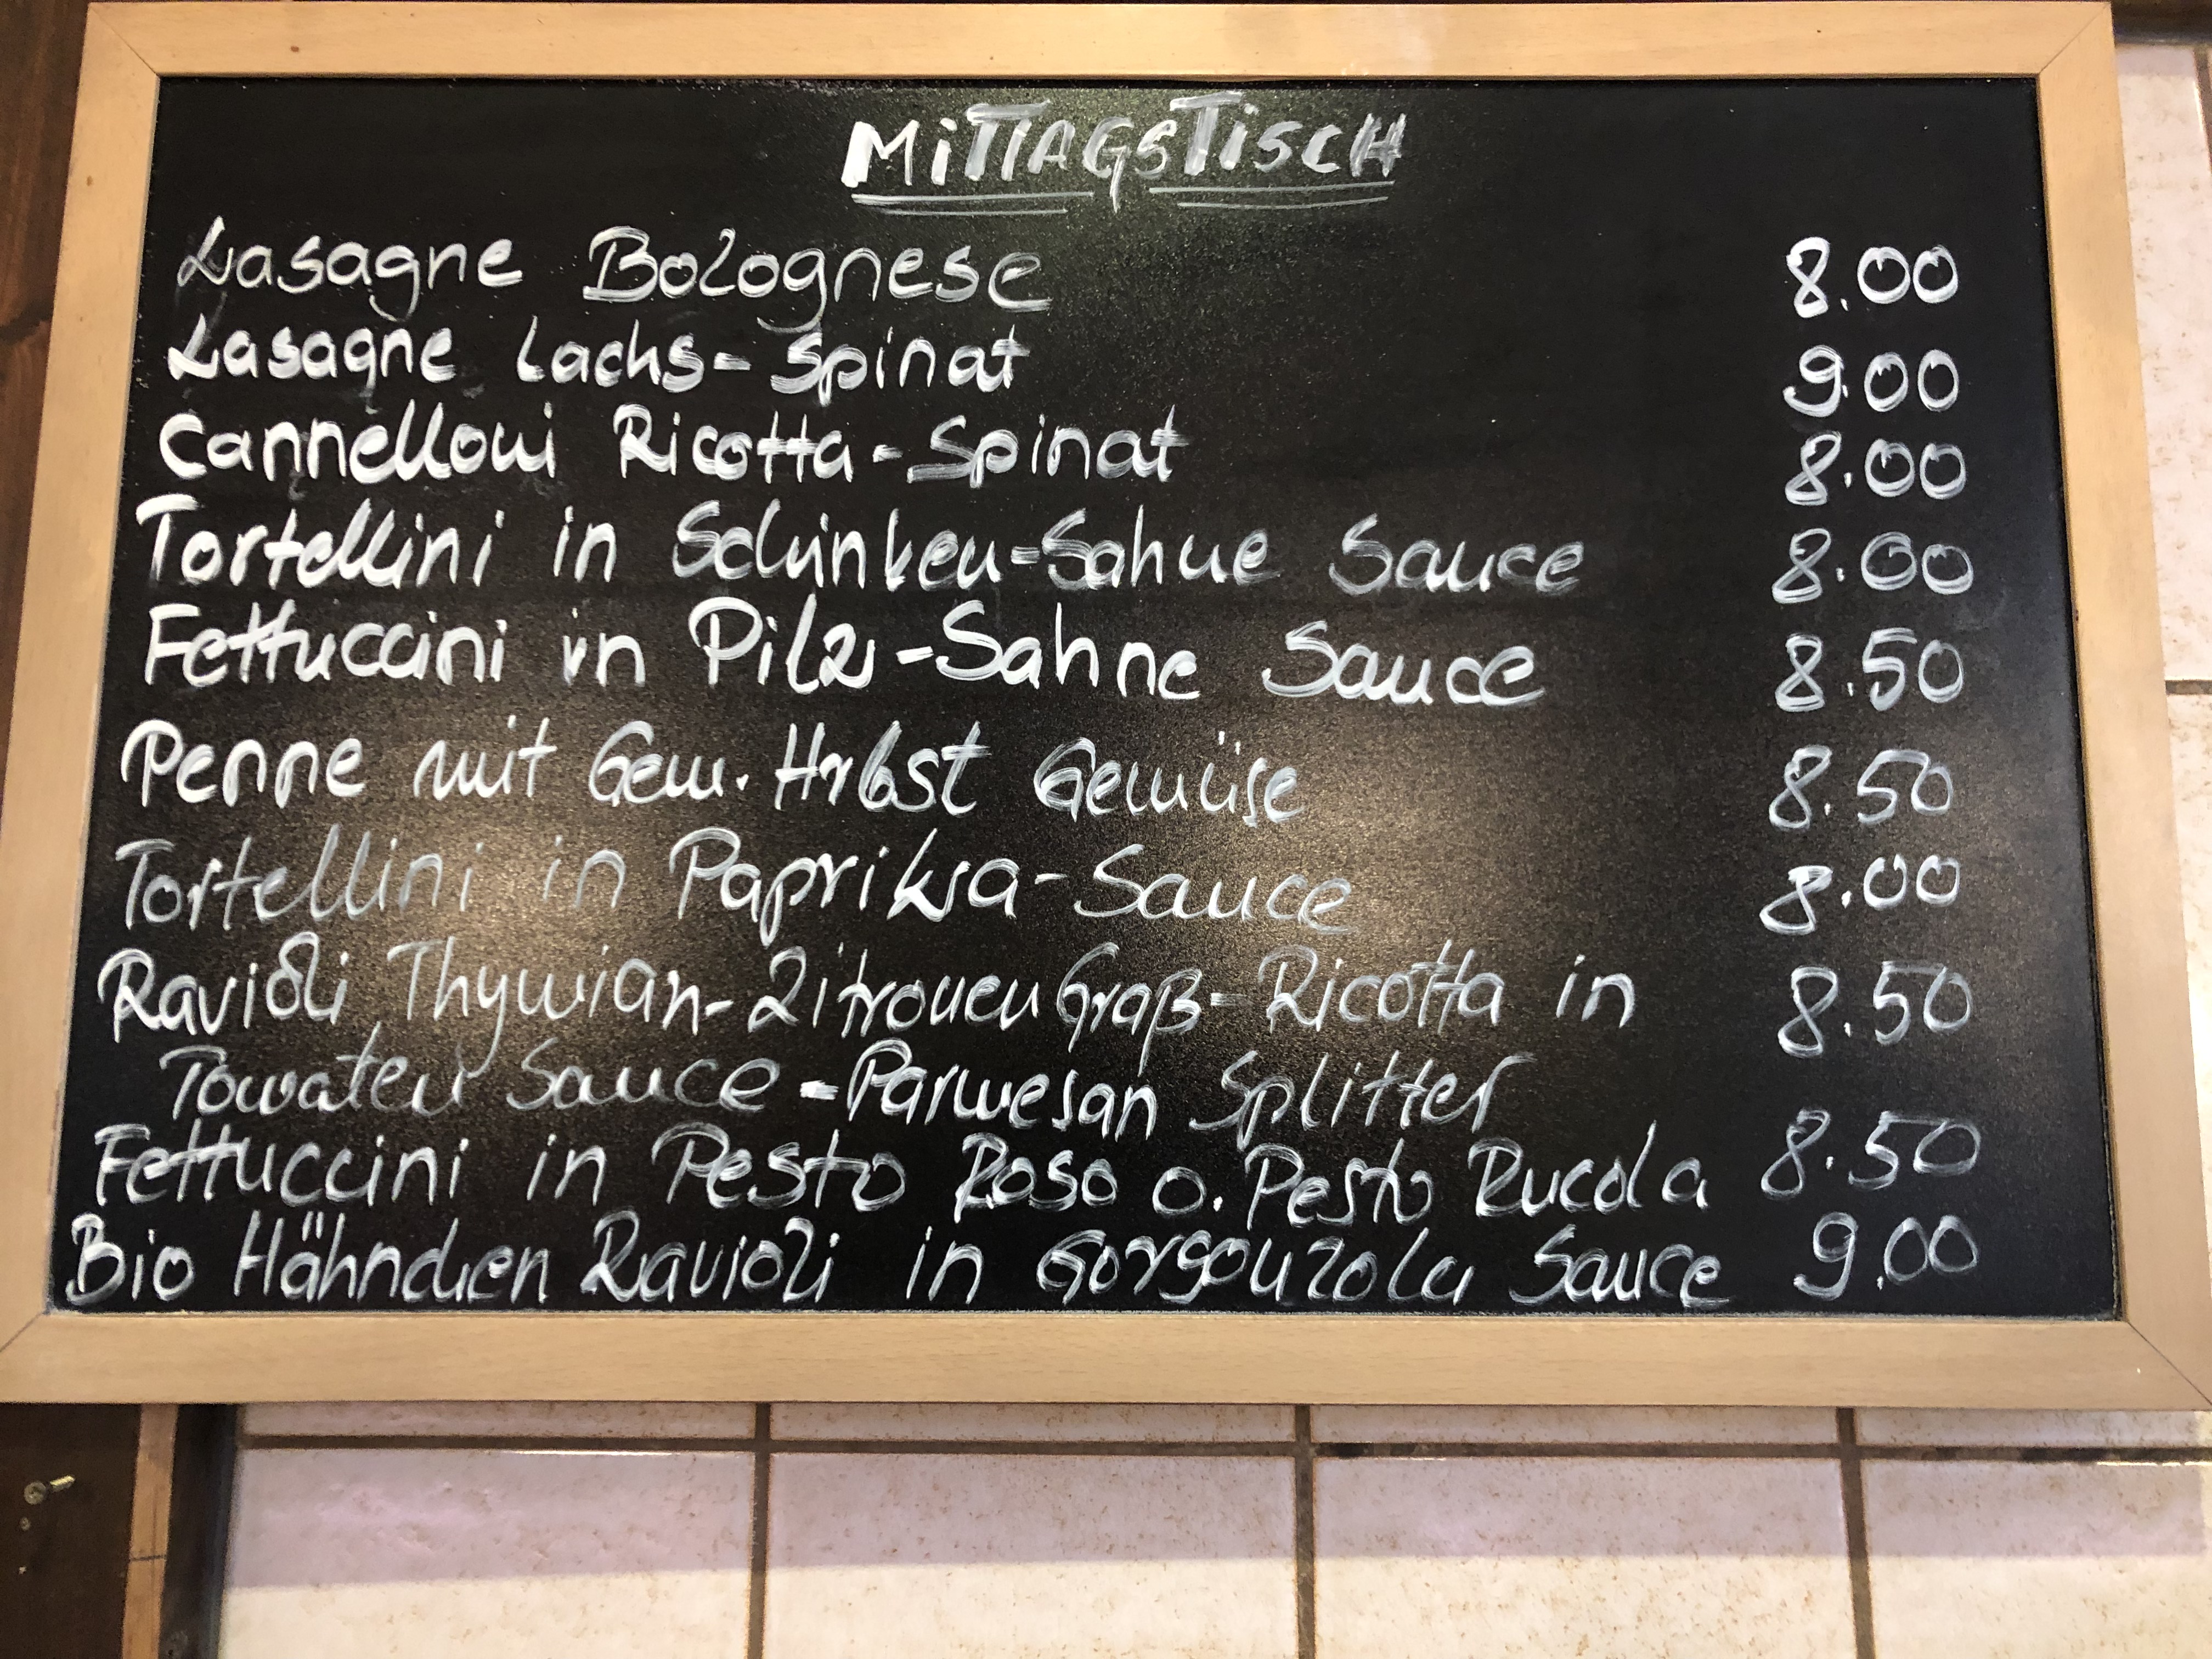 MiTTAGSTiSCH
Lasagne Bolognese 8.00
Lasagne Lachs-Spinat 9.00
Cannelloni Ricotta-Spinat 8.00
Tortellini in Schinken-Sahne Sauce 8.00
Fettuccini in Pilz-Sahne Sauce 8.50
Penne mit Gem. Hrbst Gemüse 8.50
Tortellini in Paprika-Sauce 8.00
Ravioli Thymian-Zitronen Graß-Ricotta in 8.50
Tomaten Sauce-Parmesan Splitter
Fettuccini in Pesto Roso o. Pesto Rucola 8.50
Bio Hähnchen Ravioli in Gorgonzola Sauce 9.00